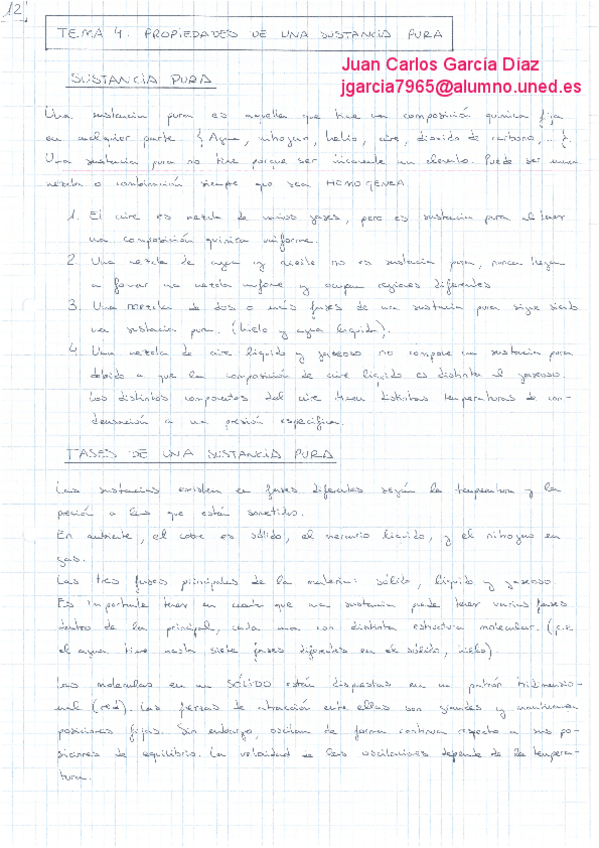 12
TEMA 4. PROPIEDADES DE UNA SUSTANCIA PURA
Juan Carlos García Díaz
jgarcia7965@alumno.uned.es
SUSTANCIA PURA
Una sustancia pura es aquella que tiene una composición química fija
en cualquier parte. { Agua, nitrógeno, helio, aire, dióxido de carbono, ... }.
Una sustancia pura no tiene porque ser únicamente un elemento. Puede ser una
mezcla o combinación siempre que sea HOMOGENEA
1. El aire es mezcla de varios gases, pero es sustancia pura al tener
una composición química uniforme.
2. Una mezcla de agua y aceite no es sustancia pura, nunca llegan
a formar una mezcla uniforme y ocupan regiones diferentes
3. Una mezcla de dos o más fases de una sustancia pura sigue siendo
una sustancia pura. (hielo y agua líquida).
4. Una mezcla de aire líquido y gaseoso no compone una sustancia pura
debido a que la composición de aire líquido es distinta al gaseoso.
Los distintos componentes del aire tienen distintas temperaturas de con-
densación a una presión específica.
FASES DE UNA SUSTANCIA PURA
Las sustancias existen en fases diferentes según la temperatura y la
presión a las que están sometidos.
En ambiente, el cobre es sólido, el mercurio líquido, y el nitrógeno en
gas.
Las tres fases principales de la materia: sólido, líquido y gaseoso.
Es importante tener en cuenta que una sustancia puede tener varias fases
dentro de la principal, cada una con distinta estructura molecular. (p.e.
el agua tiene hasta siete fases diferentes en el sólido, hielo).
Las moléculas en un SÓLIDO están dispuestas en un patrón tridimensio-
nal (red). Las fuerzas de atracción entre ellas son grandes y mantienen
posiciones fijas. Sin embargo, oscilan de forma continua respecto a sus po-
siciones de equilibrio. La velocidad de las oscilaciones depende de la tempera-
tura.